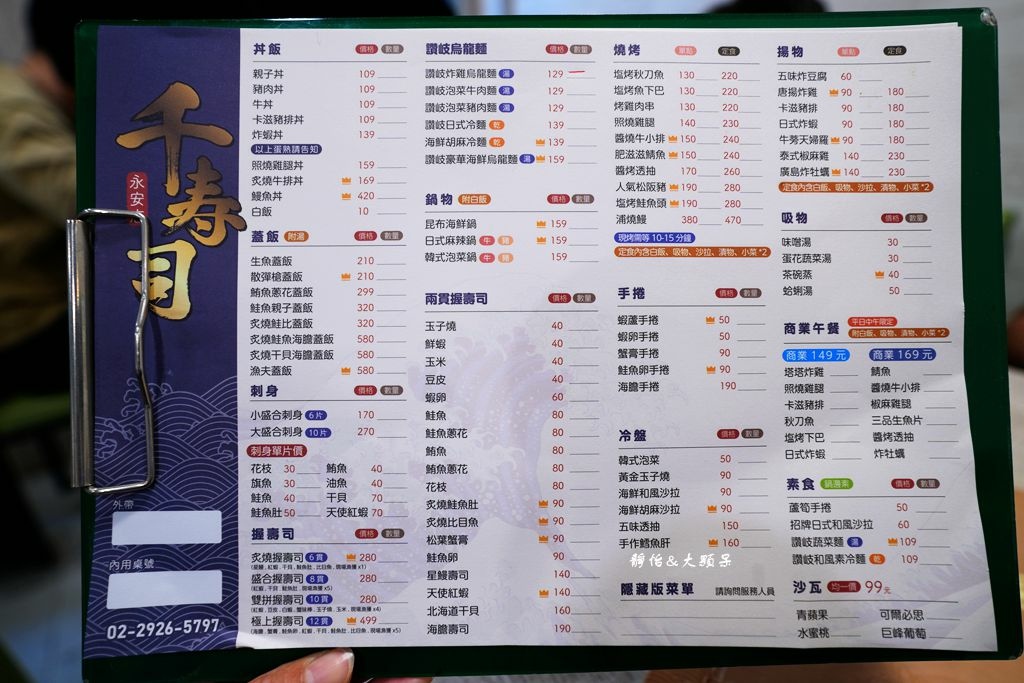 千寿司
永安
外帶
內用桌號
02-2926-5797
丼飯 價格 數量
親子丼 109
豬肉丼 109
牛丼 109
卡滋豬排丼 109
炸蝦丼 139
以上蛋熟請告知
照燒雞腿丼 159
炙燒牛排丼 169
鰻魚丼 420
白飯 10
蓋飯 附湯 價格 數量
生魚蓋飯 210
散彈槍蓋飯 210
鮪魚蔥花蓋飯 299
鮭魚親子蓋飯 320
炙燒鮭比蓋飯 320
炙燒鮭魚海膽蓋飯 580
炙燒干貝海膽蓋飯 580
漁夫蓋飯 580
刺身 價格 數量
小盛合刺身 6片 170
大盛合刺身 10片 270
刺身單片價
花枝 30 鮪魚 40
旗魚 30 油魚 40
鮭魚 40 干貝 70
鮭魚肚 50 天使紅蝦 70
握壽司 價格 數量
炙燒握壽司 6貫 280
盛合握壽司 8貫 280
雙拼握壽司 10貫 280
極上握壽司 12貫 499
讚岐烏龍麵 價格 數量
讚岐炸雞烏龍麵 湯 129
讚岐泡菜牛肉麵 湯 129
讚岐泡菜豬肉麵 湯 129
讚岐日式冷麵 乾 139
海鮮胡麻冷麵 乾 139
讚岐豪華海鮮烏龍麵 湯 159
鍋物 附白飯 價格 數量
昆布海鮮鍋 159
日式麻辣鍋 牛 豬 159
韓式泡菜鍋 牛 豬 159
兩貫握壽司 價格 數量
玉子燒 40
鮮蝦 40
玉米 40
豆皮 40
蝦卵 60
鮭魚 80
鮭魚蔥花 80
鮪魚 80
鮪魚蔥花 80
花枝 80
炙燒鮭魚肚 90
炙燒比目魚 90
松葉蟹膏 90
鮭魚卵 90
星鰻壽司 140
天使紅蝦 140
北海道干貝 160
海膽壽司 190
燒烤 單點 定食
塩烤秋刀魚 130 220
塩烤魚下巴 130 220
烤雞肉串 130 230
照燒雞腿 140 230
醬燒牛小排 150 240
肥滋滋鯖魚 150 240
醬烤透抽 170 260
人氣松阪豬 190 280
塩烤鮭魚頭 190 280
浦燒鰻 380 470
現烤需等 10-15 分鐘
定食內含白飯、吸物、沙拉、漬物、小菜 *2
手捲 價格 數量
蝦蘆手捲 50
蝦卵手捲 50
蟹膏手捲 90
鮭魚卵手捲 90
海膽手捲 190
冷盤 價格 數量
韓式泡菜 50
黃金玉子燒 90
海鮮和風沙拉 90
海鮮胡麻沙拉 90
五味透抽 150
手作鱈魚肝 160
靜怡&大顆呆
隱藏版菜單 請詢問服務人員
揚物 單點 定食
五味炸豆腐 60
唐揚炸雞 90 180
卡滋豬排 90 180
日式炸蝦 90 180
牛蒡天婦羅 90 180
泰式椒麻雞 140 230
廣島炸牡蠣 140 230
定食內含白飯、吸物、沙拉、漬物、小菜 *2
吸物 價格 數量
味噌湯 30
蛋花蔬菜湯 30
茶碗蒸 40
蛤蜊湯 50
商業午餐 平日中午限定
附白飯、吸物、漬物、小菜 *2
商業 149 元 商業 169 元
塔塔炸雞 鯖魚
照燒雞腿 醬燒牛小排
卡滋豬排 椒麻雞腿
秋刀魚 三品生魚片
塩烤下巴 醬烤透抽
日式炸蝦 炸牡蠣
素食 鍋邊素 價格 數量
蘆筍手捲 50
招牌日式和風沙拉 60
讚岐蔬菜麵 湯 109
讚岐和風素冷麵 乾 109
沙瓦 均一價 99元
青蘋果 可爾必思
水蜜桃 巨峰葡萄